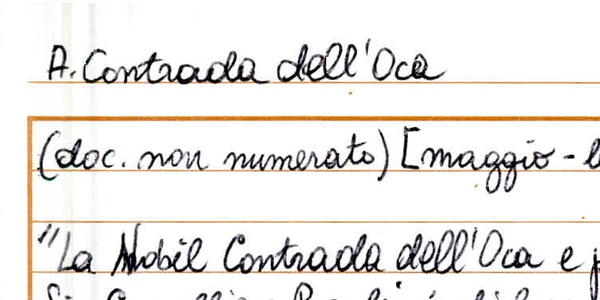 A. Contrada dell'Oca
(doc. non numerato) [maggio -
"La Nobil Contrada dell'Oca e